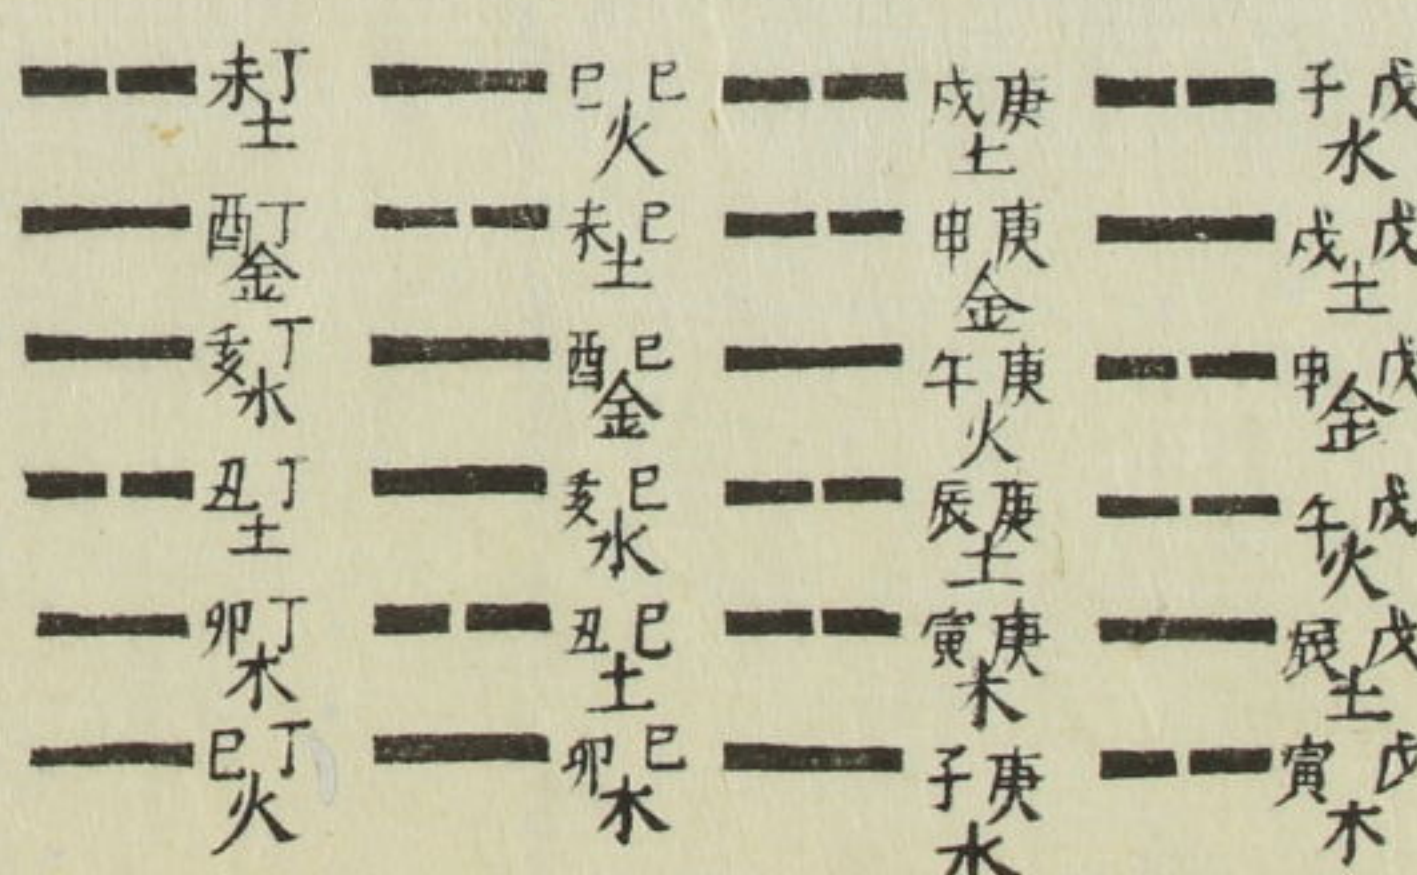 戊子水
戊戌土
戊申金
戊午火
戊辰土
戊寅木
庚戌土
庚申金
庚午火
庚辰土
庚寅木
庚子水
巳巳火
巳未土
巳酉金
巳亥水
巳丑土
巳卯木
丁未土
丁酉金
丁亥水
丁丑土
丁卯木
丁巳火